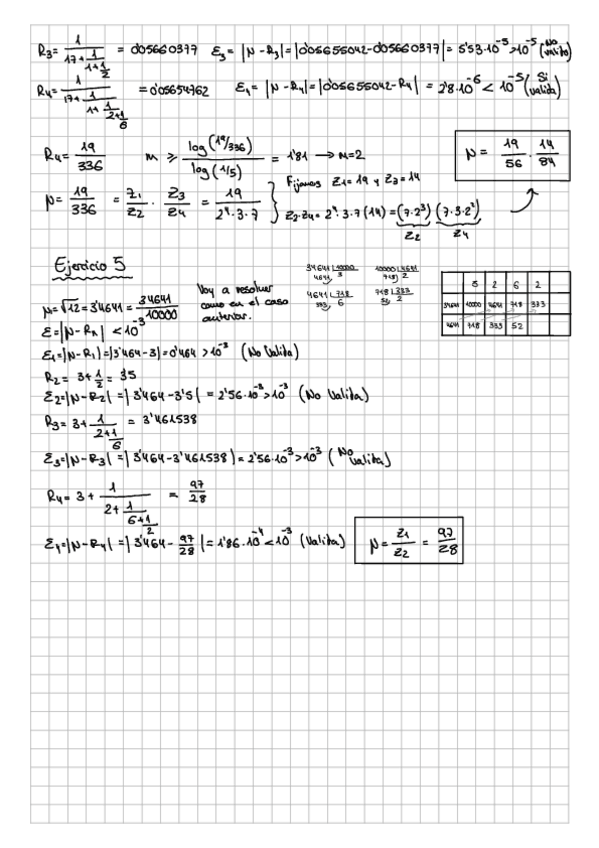 R3 = 1/(17+1/(1+1/2)) = 0'05660377 ε3 = |N - R3| = |0'05655042 - 0'05660377| = 5'53·10^-5 > 10^-5 (No valido)
R4 = 1/(17+1/(1+1/(2+1/6))) = 0'05654762 ε4 = |N - R4| = |0'05655042 - R4| = 2'8·10^-6 < 10^-5 (Si valida)
R4 = 19/336 m ≥ log(19/336)/log(1/5) = 1'81 → m=2
N = 19/56 · 14/84
N = 19/336 = Z1/Z2 · Z3/Z4 = 19/(2^4·3·7)
Fijamos Z1=19 y Z3=14
Z2·Z4 = 2^4·3·7(14) = (7·2^3)(7·3·2^2)
Z2 Z4
Ejercicio 5
N = √12 = 3'4641 = 34641/10000
Voy a resolver
como en el caso
anterior.
34641 | 10000
4641 3
10000 | 4641
718 2
4641 | 718
333 6
718 | 333
52 2
5 2 6 2
34641 10000 4641 718 333
4641 718 333 52
ε = |N - Rn| < 10^-3
ε1 = |N - R1| = |3'464 - 3| = 0'464 > 10^-3 (No Valida)
R2 = 3 + 1/2 = 3'5
ε2 = |N - R2| = |3'464 - 3'5| = 2'56·10^-3 > 10^-3 (No Valida)
R3 = 3 + 1/(2+1/6) = 3'461538
ε3 = |N - R3| = |3'464 - 3'461538| = 2'56·10^-3 > 10^-3 (No Valida)
R4 = 3 + 1/(2+1/(6+1/2)) = 97/28
ε4 = |N - R4| = |3'464 - 97/28| = 1'86·10^-4 < 10^-3 (Valida)
N = Z1/Z2 = 97/28